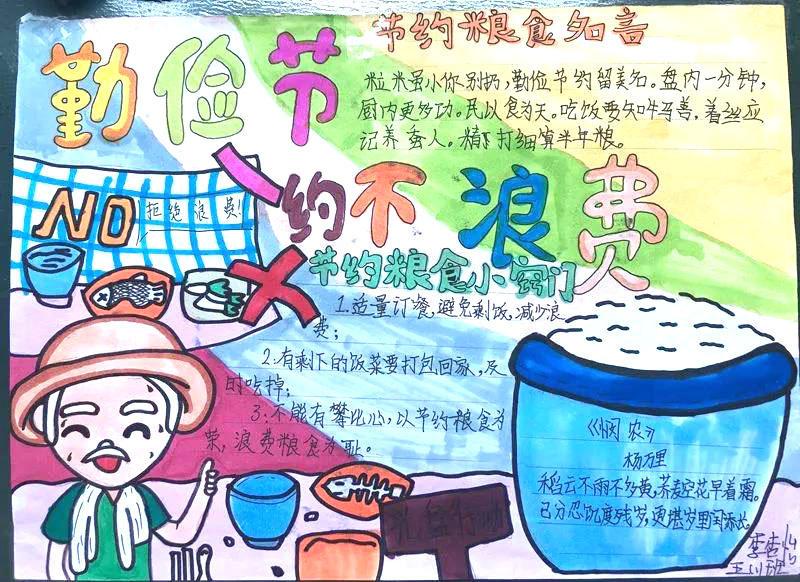 节约粮食名言
勤俭节
粒米虽小你别扔,勤俭节约留美名。盘内一分钟,
厨内更多功。民以食为天。吃饭要知牛马善,着丝应
记养蚕人。精打细算半年粮。
约不浪费
NO
拒绝浪费!
节约粮食小窍门
1.适量订餐,避免剩饭,减少浪
费;
2.有剩下的饭菜要打包回家,及
时吃掉;
3.不能有攀比心,以节约粮食为
荣,浪费粮食为耻。
《悯农》
杨万里
稻云不雨不多黄,荞麦空花早着霜。
已分忍饥度残岁,更堪岁里闰添长。
光盘行动